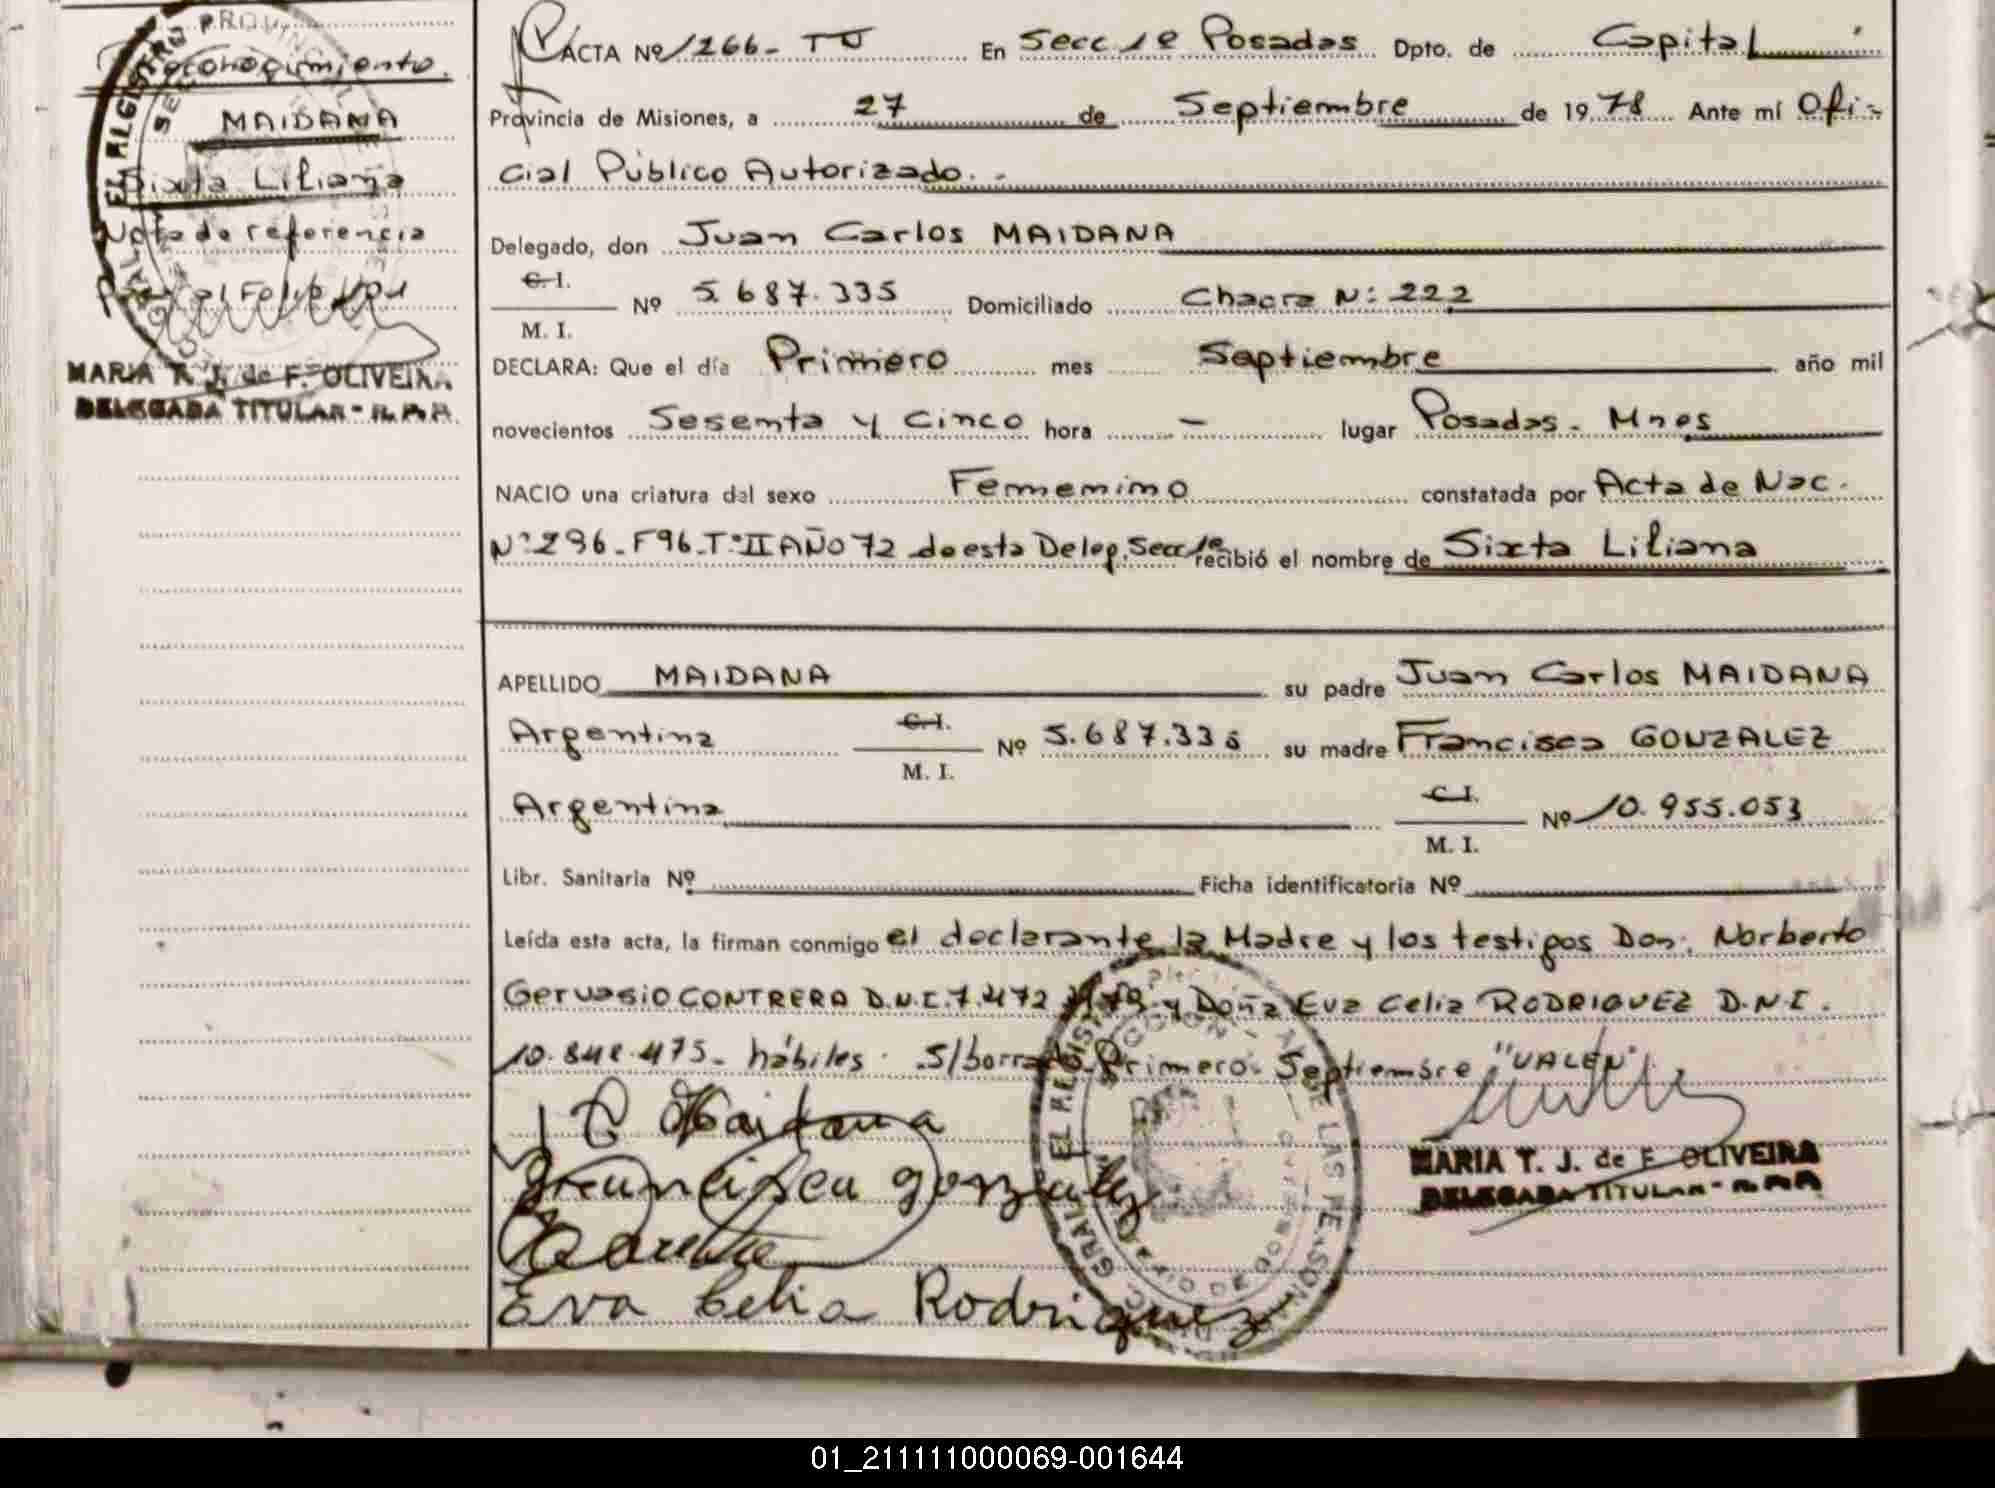 Reconocimiento.
MAIDANA
Sixta Liliana
Nota de referencia
al Folio
MARIA T. J. de F. OLIVEIRA
DELEGADA TITULAR - R.P.P.
ACTA Nº 1266- TU En Secc 1º Posadas Dpto. de Capital
Provincia de Misiones, a 27 de Septiembre de 1978 Ante mí Ofi-
cial Público Autorizado.-
Delegado, don Juan Carlos MAIDANA
C. I.
M. I.
Nº 5.687.335 Domiciliado Chacra N: 222
DECLARA: Que el día Primero mes Septiembre año mil
novecientos Sesenta y Cinco hora - lugar Posadas. Mnes
NACIO una criatura del sexo Femenino constatada por Acta de Nac.
Nº 296-F96-TºII AÑO 72 de esta Deleg. Secc 1º recibió el nombre de Sixta Liliana
APELLIDO MAIDANA su padre Juan Carlos MAIDANA
Argentina C. I. M. I. Nº 5.687.335 su madre Francisca GONZALEZ
Argentina C. I. M. I. Nº 10.955.053
Libr. Sanitaria Nº Ficha identificatoria Nº
Leída esta acta, la firman conmigo el declarante la Madre y los testigos Don. Norberto
Gervasio CONTRERA D.N.I. 7.472 y Doña Eva Celia RODRIGUEZ D.N.I.
10.848.475- hábiles. S/borrado Primero. Septiembre "VALEN".
J C Maidana
Francisca gonzalez
Eva Celia Rodriguez
MARIA T. J. de F. OLIVEIRA
DELEGADA TITULAR - R.P.P.
01_211111000069-001644